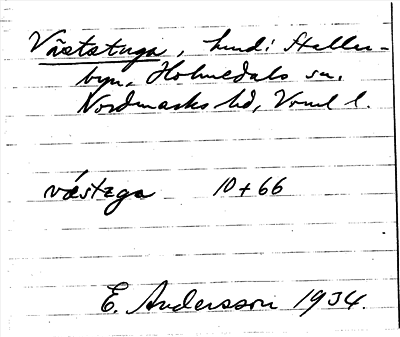 Väststuga, hmd i Staller-
byn, Holmedals sn,
Nordmarks hd, Vrml l.
västaga 10+66
E. Andersson 1934.